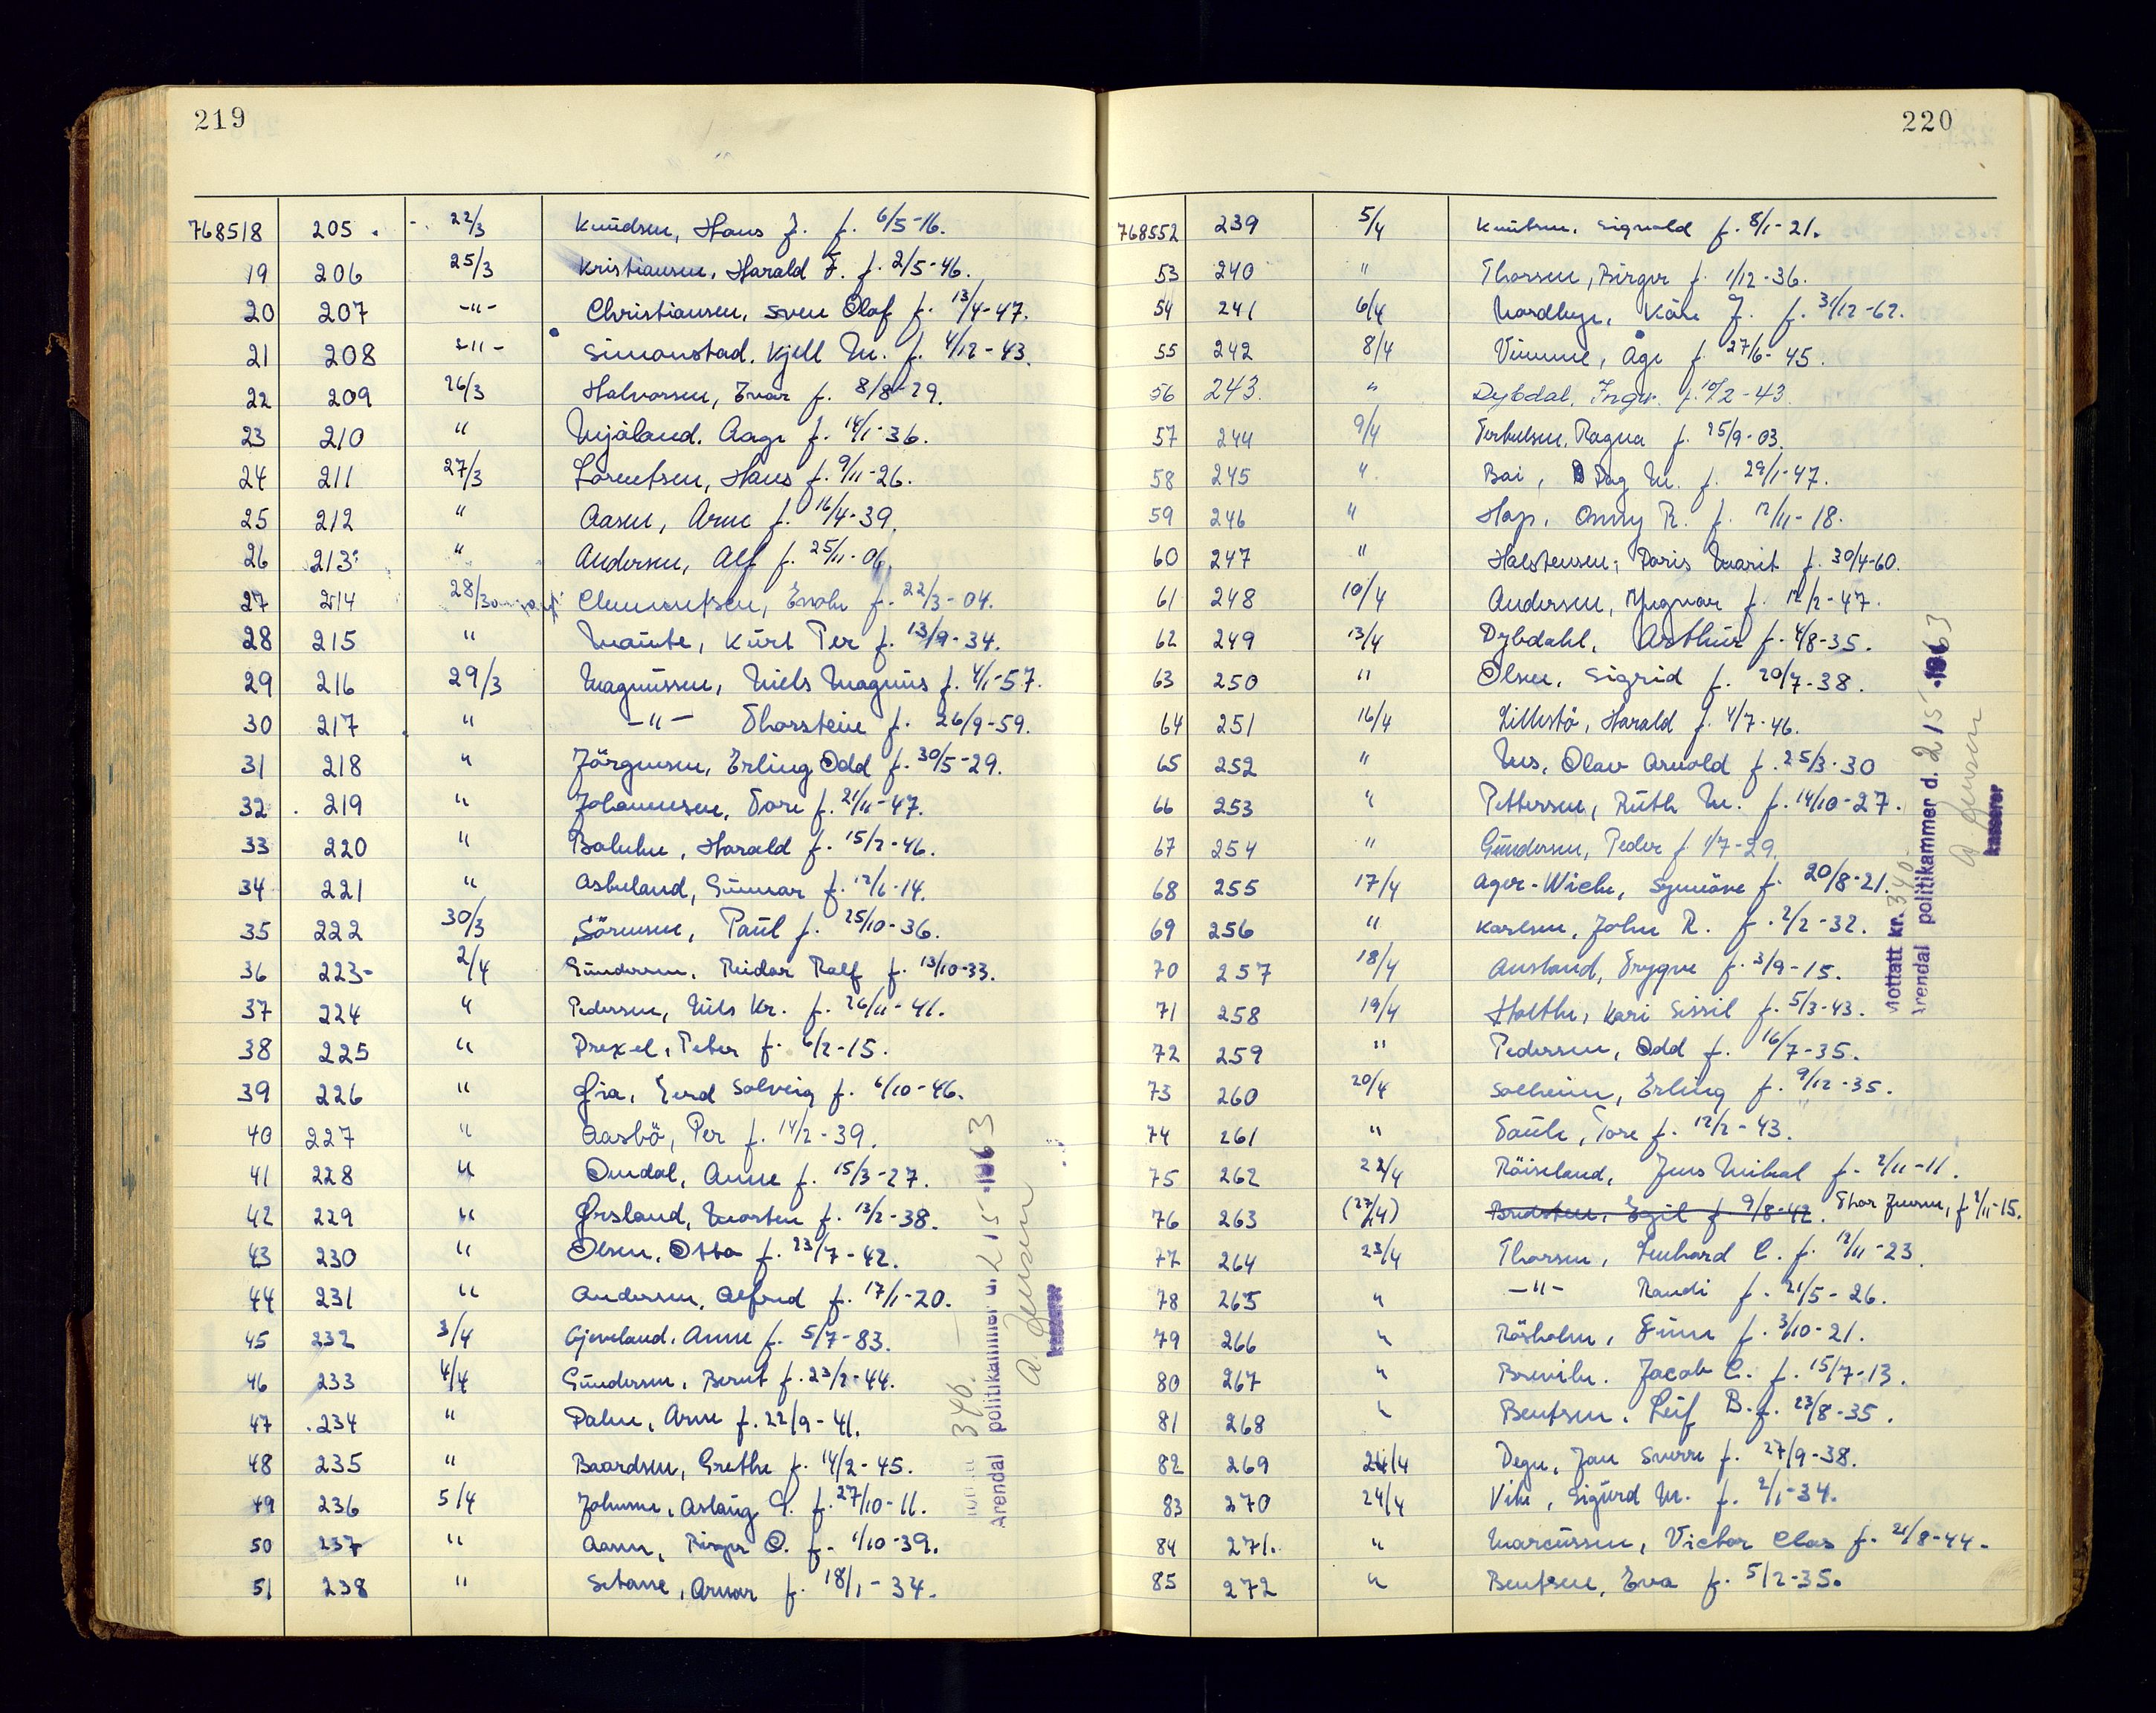 219
768518 205. - 22/3 Knudsen, Hans J. f. 6/5-16.
19 206 25/3 Kristiansen, Harald F. f. 2/5-46.
20 207 -"- Christiansen, Sven Olaf f. 13/4-47.
21 208 -"- Simonstad, Kjell M. f. 4/12-43.
22 209 26/3 Halvorsen, Evar f. 8/8-29.
23 210 " Mjåland, Aage f. 14/1-36.
24 211 27/3 Lorentsen, Hans f. 9/11-26.
25 212 " Aasen, Arne f. 16/4-39.
26 213 " Andersen, Alf f. 25/11-06.
27 214 28/3 Clemmetsen, f. 22/3-04.
28 215 " Kurt Per f. 13/9-34.
29 216 29/3 Magnussen, Niels Magnus f. 4/1-57.
30 217 " -"- Thorstein f. 26/9-59.
31 218 " Jörgensen, Erling Odd f. 30/5-29.
32. 219 " Johannesen, Tore f. 21/11-47.
33 220 " Harald f. 15/2-46.
34 221 " Gunnar f. 12/6-14.
35 222 30/3 Sörensen, Paul f. 25/10-36.
36 223- 2/4 Gundersen, Reidar Ralf f. 13/10-33.
37 224 " Pedersen, Nils Kr. f. 26/11-41.
38 225 " Drexel, Peter f. 6/2-15.
39 226 " Gerd Solveig f. 6/10-46.
40 227 " Aasbö, Per f. 14/2-39.
41 228 " Omdal, Anne f. 15/3-27.
42 229 " Morten f. 13/2-38.
43 230 " Olsen, Otto f. 23/7-42.
44 231 " Andersen, Alfred f. 17/1-20.
45 232 3/4 Gjeveland, Anne f. 5/7-83.
46 233 4/4 Gundersen, Bernt f. 23/2-44.
47 .234 " Palm, Arne f. 22/9-41.
48 235 " Baardsen, Grethe f. 14/2-45.
49 236 5/4 Johnsen, Aslaug f. 27/10-11.
50 237 " Aasen, Birger O. f. 1/10-39.
51 238 " Arnar f. 18/1-34.
346.
Arendal politikammer d. 2/5 1963
A. Jensen
kasserer
220
768552 239 5/4 Knutsen, Sigvald f. 8/1-21.
53 240 " Thorsen, Birger f. 1/12-36.
54 241 6/4 Kåre J. f. 31/12-62.
55 242 8/4 Vimme, Åge f. 27/6-45.
56 243. " Dybdal, Inger f. 10/2-43.
57 244 9/4 Terkelsen, Ragna f. 25/9-03.
58 245 " Boi, Dag M. f. 29/1-47.
59 246 " Hop, Onny R. f. 12/11-18.
60 247 " Halstensen, Doris Marit f. 30/4-60.
61 248 10/4 Andersen, Yngvar f. 12/2-47.
62 249 13/4 Dybdahl, Arthur f. 4/8-35.
63 250 " Olsen, Sigrid f. 20/7-38.
64 251 16/4 Lillestö, Harald f. 4/7-46.
65 252 " Olav Arnold f. 25/3-30
66 253 " Pettersen, Ruth M. f. 14/10-27.
67 254 " Gundersen, Peder f. 1/7-29.
68 255 17/4 Ager-Wiche, Synnöve f. 20/8-21.
69 256 " Karlsen, John R. f. 2/2-32.
70 257 18/4 Ausland, Trygve f. 3/9-15.
71 258 19/4 Holthe, Kari Sissil f. 5/3-43.
72 259 " Pedersen, Odd f. 16/7-35.
73 260 20/4 Solheim, Erling f. 9/12-35.
74 261 " Tore f. 12/2-43.
75 262 22/4 Röiseland, Jens Mikal f. 2/11-11.
76 263 (27/4) Egil f. 9/8-42. Thor Jensen, f. 2/11-15.
77 264 23/4 Thorsen, Lenhard C. f. 13/11-23.
78 265 " -"- Randi f. 21/5-26.
79 266 " Råsholm, Finn f. 3/10-21.
80 267 " Brevik, Jacob C. f. 15/7-13.
81 268 " Bentsen, Leif B. f. 23/8-35.
82 269 24/4 Degn, Jan Sverre f. 27/9-38.
83 270 24/4 Vike, Sigurd M. f. 2/1-34.
84 271. " Marcussen, Victor Clas f. 21/8-44.
85 272 " Bentsen, Eva f. 5/2-35.
Mottatt kr. 340.
Arendal politikammer d. 2/5 1963
A. Jensen
kasserer